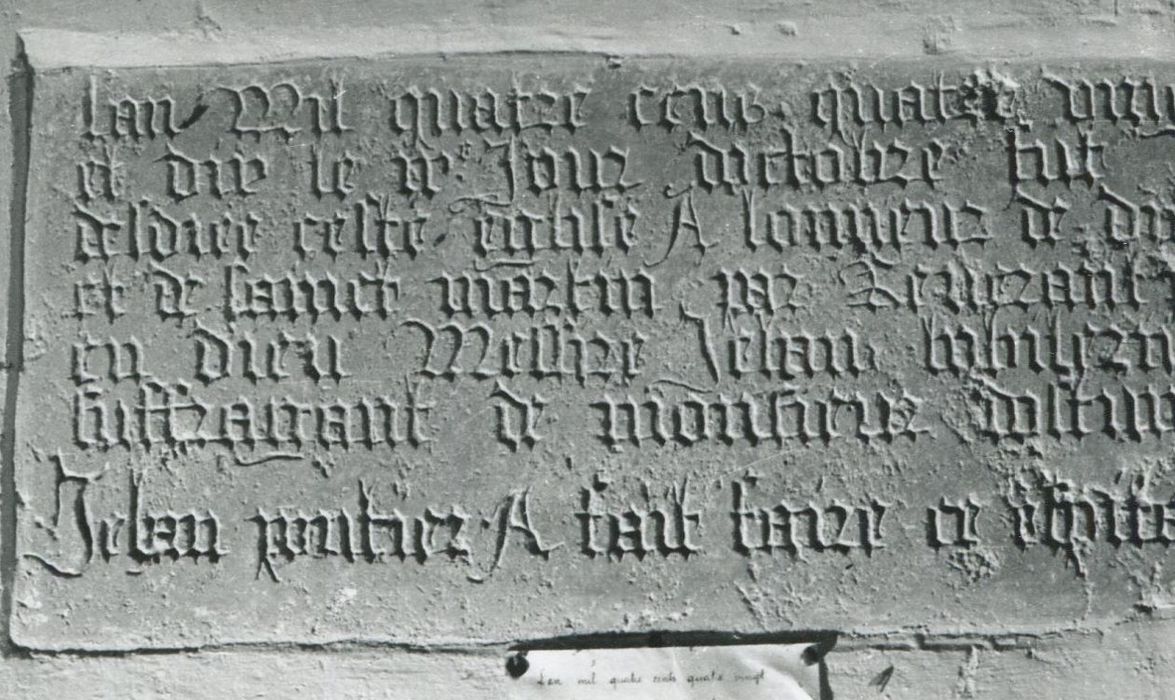 lan Mil quatre cens quatre ving
et dix le iiie Jour dictobre fut
desdiee ceste eglise A lonneur de di
et de sainct martin par Reuerant
en dieu Messire Jehan
suffragant de monsieur
Jehan pontier A fait faire ce
L'an mil quatre cents quatre vingt